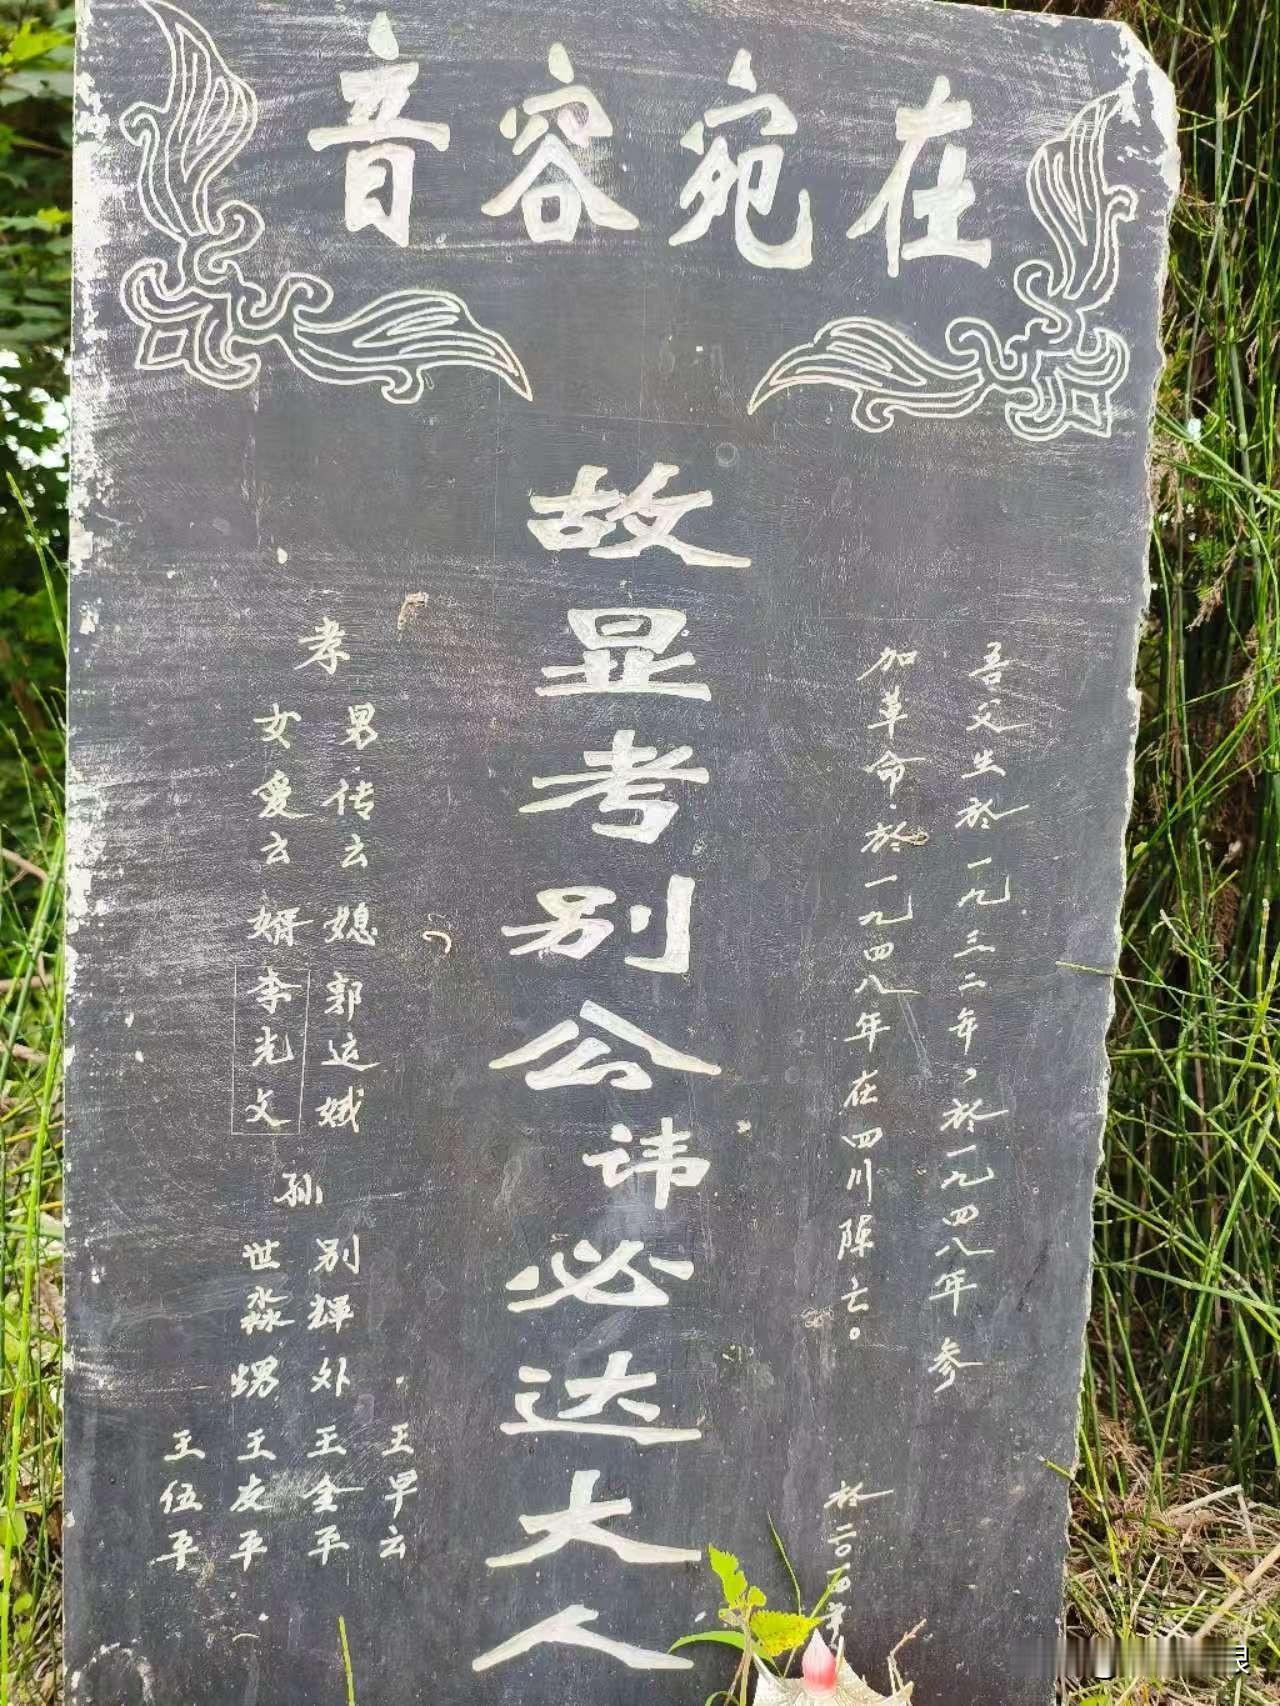 音容宛在
吾父生於一九三二年，於一九四八年参
加革命，於一九四八年在四川阵亡。
故显考别公讳必达大人
孝
男传云 媳郭运娥
女爱云 婿李光文
孙
别辉
世淼
外
甥
王早云
王金平
王友平
王伍平